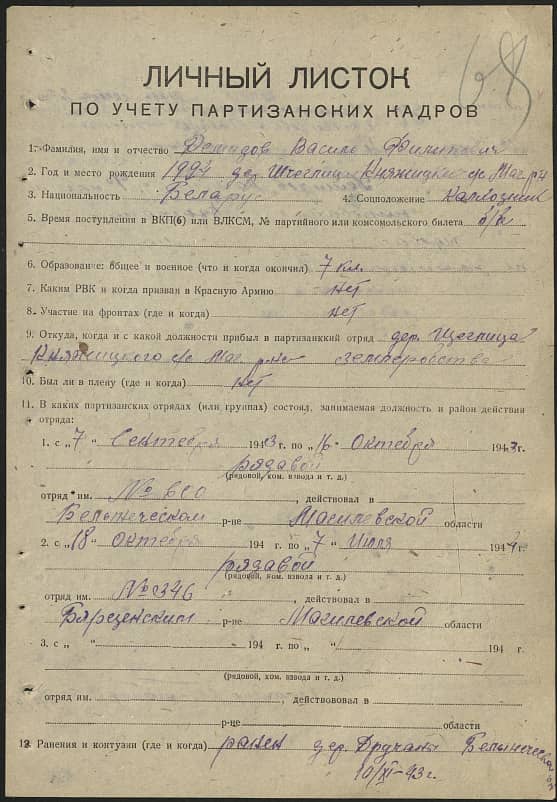 68
ЛИЧНЫЙ ЛИСТОК
ПО УЧЕТУ ПАРТИЗАНСКИХ КАДРОВ
1. Фамилия, имя и отчество Демидов Василь Филипович
2. Год и место рождения 1924 дер. Щеглица Княжицкий с/с Маг. р-н
3. Национальность Беларус 4. Соцположение Каллозник
5. Время поступления в ВКП(б) или ВЛКСМ, № партийного или комсомольского билета б/п
6. Образование: общее и военное (что и когда окончил) 7 кл.
7. Каким РВК и когда призван в Красную Армию нет
8. Участие на фронтах (где и когда) нет
9. Откуда, когда и с какой должности прибыл в партизанкий отряд дер. Щеглица
Княжицкого с/с Маг. р-на земляробства
10. Был ли в плену (где и когда) нет
11. В каких партизанских отрядах (или группах) состоял, занимаемая должность и район действия
отряда:
1. с „7" Сентября 1943 г. по „16" Октября 1943 г.
рядавой
(рядовой, ком. взвода и т. д.)
отряд им. № 600, действовал в
Белыническом р-не Магилевской области
2. с „18" Октября 194 г. по „7" Июля 1944 г.
рядавой
(рядовой, ком. взвода и т. д.)
отряд им. № 346, действовал в
Бярезенским р-не Магилевской области
3. с „ " 194 г. по „ " 194 г.
(рядовой, ком. взвода и т. д.)
отряд им. , действововал в
р-не области
12. Ранения и контузии (где и когда) ранен дер. Дручаны Белынический
10/XI-43 г.